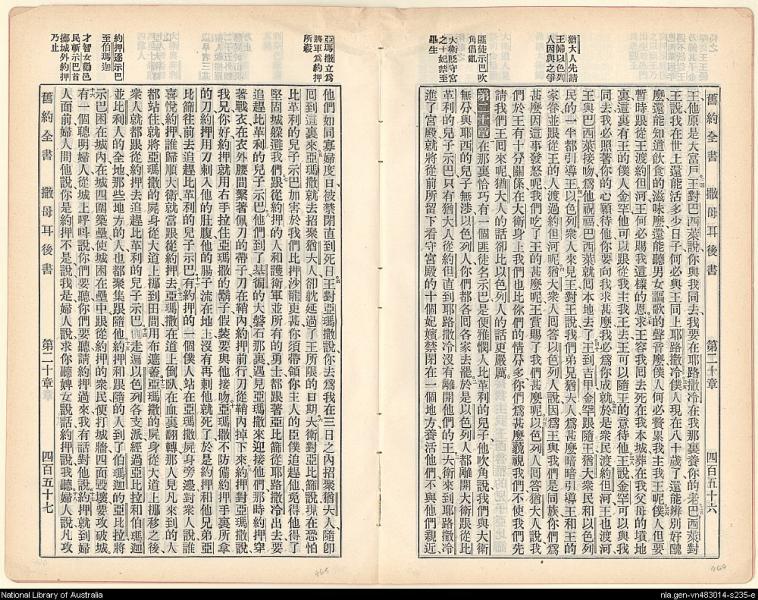 舊約全書 撒母耳後書 第二十章 四百五十六
王他原是大富戶王對巴西萊說你與我同去我要在耶路撒冷在我那裏養你的老巴西萊對
王說我在世上還能活多少日子何必與王同上耶路撒冷僕人現在八十歲了還能辨別好醜
麼還能知道飲食的滋味麼還能聽男女謳歌的聲音麼僕人何必贅累我主我王呢僕人但要
暫時跟從王渡約但河王何必賜我這樣的恩求王容我回去死在我本城葬在我父母的墳地
裏這裏有王的僕人金罕他可以跟從我主我王去王可以隨王的意待他王說金罕可以與我
同去我必照著你的心願待他你要向我求甚麼我必為你成就於是衆民渡約但河王也渡河
王與巴西萊接吻為他祝福巴西萊就回本地去了王到吉甲金罕跟隨王猶大衆民和以色列
民的一半都引導王以色列衆人來見王對王說我們弟兄猶大人為甚麼暗暗引導王和王的
家眷並跟從王的人渡過約但河呢猶大衆人回答以色列人說因為王與我們是同族你們為
甚麼因這事發怒呢我們吃了王的甚麼呢王賞賜了我們甚麼呢以色列人回答猶大人說我
們於王有十分關係在大衛身上我們也比你們的情分多你們為甚麼藐視我們不使我們先
請我們王回來呢猶大人的話卻比以色列人的話更嚴厲
第二十章 在那裏恰巧有一個匪徒名示巴是便雅憫人比革利的兒子他吹角說我們與大衛
無分與耶西的兒子無涉以色列人你們都各回各家去罷於是以色列人都離開大衛跟從比
革利的兒子示巴只有猶大人從約但直到耶路撒冷沒有離開他們的王大衛來到耶路撒冷
進了宮殿就將從前所留下看守宮殿的十個妃嬪禁閉在一個地方養活他們不與他們親近
猶大人先請
王歸以色列
人因與之爭
匪徒示巴吹
角倡亂
大衛貶守宮
之十妃禁至
畢生
他們如同寡婦度日被禁閉直到死日王對亞瑪撒說你去為我在三日之內招聚猶大人隨卽
回到這裏來亞瑪撒就去招聚猶大人卻就延過了王所限的日期大衛對亞比篩說現在恐怕
比革利的兒子示巴加害於我們比押沙龍更甚你須帶領你主人的臣僕追趕他免得他得了
堅固城躱避我們跟從約押的人和護衛軍並所有的勇士都跟著亞比篩從耶路撒冷出去要
追趕比革利的兒子示巴他們到了基徧的大磐石那裏遇見亞瑪撒來迎接他們那時約押穿
著戰衣在衣外腰間繫著佩刀的帶子刀在鞘內約押前行刀從鞘內掉下來約押對亞瑪撒說
我兄你好約押就用右手拉住亞瑪撒的鬍子假裝要與他接吻亞瑪撒不防備約押手裏所拿
的刀約押用刀刺入他的肚腹他的腸子流在地上沒有再刺他就死了於是約押和他兄弟亞
比篩往前去追趕比革利的兒子示巴有約押的一個僕人站在亞瑪撒屍身旁邊對衆人說誰
喜悅約押誰歸順大衛就當跟從約押去亞瑪撒在道上倒臥在血裏翻轉那人見凡來到的人
都站住就將亞瑪撒的屍身從大道上挪到田間用布遮蓋亞瑪撒的屍身從大道上挪移之後
衆人就都跟從約押去追趕比革利的兒子示巴走遍以色列各支派經過亞比拉和伯瑪迦
並比利人的全地那些地方的人也都聚集跟隨他約押和跟隨的人到了伯瑪迦的亞比拉將
示巴困在城內在城四圍築壘使城困在壘中跟從約押的衆民便打城牆四面毀壞要攻破城
有一個聰明婦人從城上呼叫說你們要聽你們要聽請約押過來我有話對他說約押就到婦
人面前婦人問他說你是約押不是說我是婦人說求你聽婢女說話約押說我聽婦人說凡攻
舊約全書 撒母耳後書 第二十章 四百五十七
亞瑪撒立為
將軍為約押
所殺
約押逐示巴
至伯瑪迦
才智女勸邑
民斬示巴首
擲城外約押
乃止
National Library of Australia
nla.gen-vn483014-s235-e